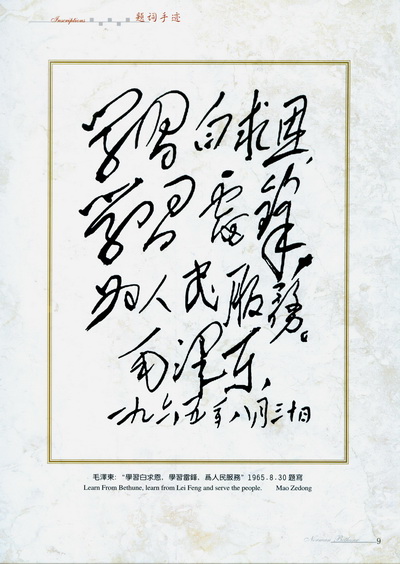 Inscriptions 题词手迹
学習白求恩，
学習雷鋒，
为人民服務。
毛澤东
一九六五年八月三十日
毛澤東：“學習白求恩，學習雷鋒，爲人民服務”1965.8.30題寫
Learn From Bethune, learn from Lei Feng and serve the people. Mao Zedong
Norman Bethune 9